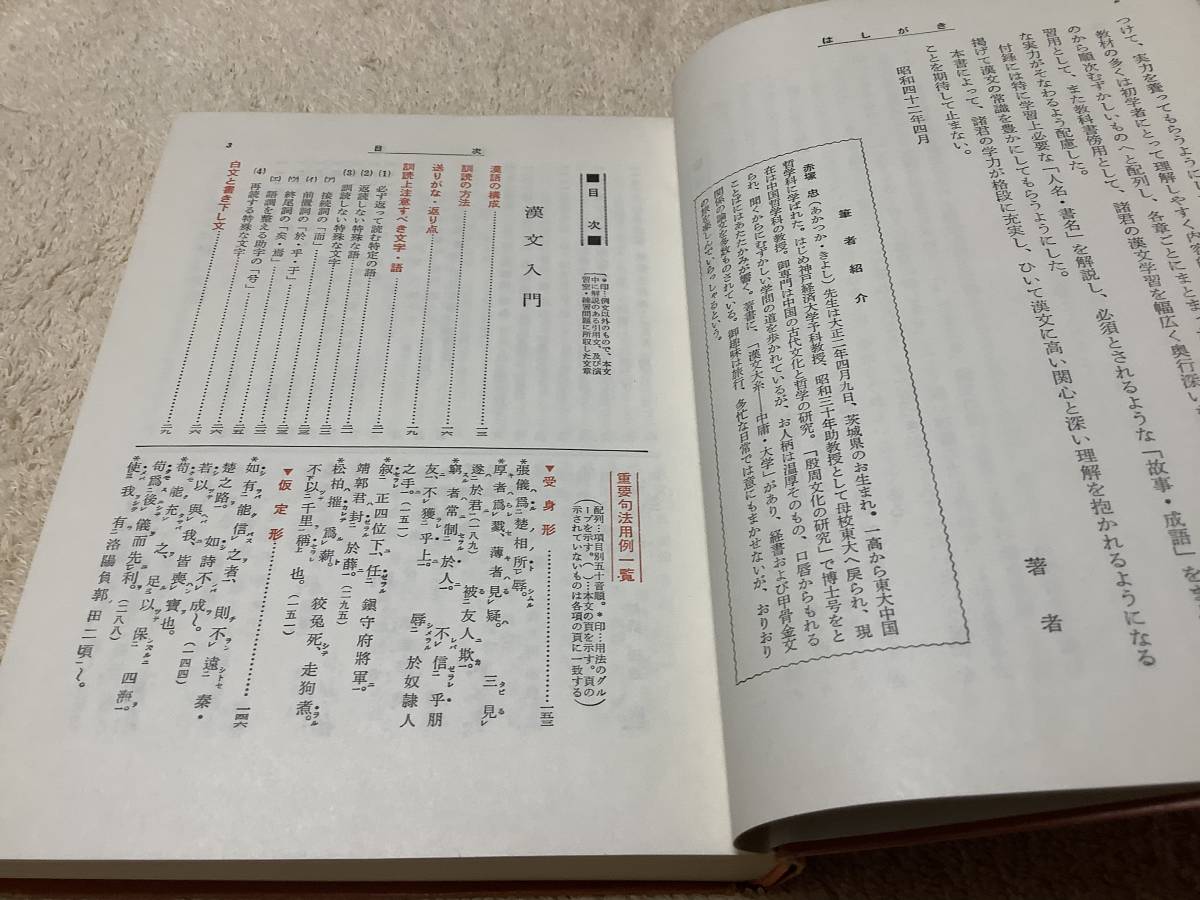 はしがき
つけて、実力を養ってもらうように
教材の多くは初学者にとって理解しやすく内容
のから順次むずかしいものへと配列し、各章ごとにまとまっ
習用として、また教科書傍用として、諸君の漢文学習を幅広く奥行深い
な実力がそなわるよう配慮した。
付録には特に学習上必要な「人名・書名」を解説し、必須とされるような「故事・成語」を
掲げて漢文の常識を豊かにしてもらうようにした。
本書によって、諸君の学力が格段に充実し、ひいて漢文に高い関心と深い理解を抱かれるようになる
ことを期待して止まない。
昭和四十二年四月
著者
筆者紹介
赤塚 忠(あかつか・きよし)先生は大正二年四月九日、茨城県のお生まれ。一高から東大中国
哲学科に学ばれた。はじめ神戸経済大学予科教授、昭和三十年助教授として母校東大へ戻られ、現
在は中国哲学科の教授。御専門は中国の古代文化と哲学の研究。「殷周文化の研究」で博士号をと
られ、聞くからにむずかしい学問の道を歩かれているが、お人柄は温厚そのもの、口唇からもれる
ことばにはあたたかみが響く。著書に、「漢文大系――中庸・大学」があり、経書および甲骨金文
関係の論文を多数ものされている。御趣味は旅行、多忙な日常では意にもまかせないが、おりおり
の旅を楽しんでいらっしゃるという。
目次
3
■目次■
*印…例文以外のもので、本文
中に解説のある引用文、及び演
習室・練習問題に所収した文章
漢文入門
漢語の構成……一三
訓読の方法
送りがな・返り点……一六
訓読上注意すべき文字・語……一九
(1) 必ず返って読む特定の語
(2) 返読しない特殊な語……二一
(3) 訓読しない特殊な文字……二一
(ア) 接続詞の「而」……二三
(イ) 前置詞の「於・乎・于」……二三
(ウ) 終尾詞の「矣・焉」……二三
(エ) 語調を整える助字の「兮」……二五
(4) 再読する特殊な文字……二六
白文と書き下し文……二九
重要句法用例一覧
配列…項目別五十音順。*印…用法のグル
ープを示す。( )…本文の頁を示す。頁の
示されていないものは各項の頁に一致する
▼受身形……一五三
*張儀爲楚相所辱。
*厚者爲戮、薄者見疑。 三見
遂於君(一八九) 被友人欺。
*窮者常制於人。 不信乎朋
友、不獲乎上。 辱於奴隷人
之手。(一五一)
*叙正四位下、任鎭守府將軍。
靖郭君封於薛。(二九五)
*松柏摧爲薪。 狡兎死、走狗煮。
不以千里稱也。(一五一)
▼仮定形……一四六
*如有能信之者、則不遠秦・
楚之路。 如詩不成～。
若以與我、皆喪寶也。(一四四)
*苟能充之、足以保四海。
苟爲後儀而先利。(二八八)
*使我有洛陽負郭田二頃～。